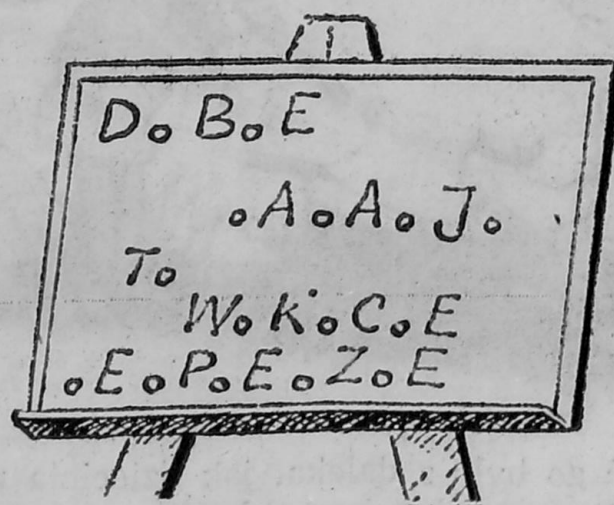 D.B.E
.A.A.J.
T.
W.K.C.E
.E.P.E.Z.E